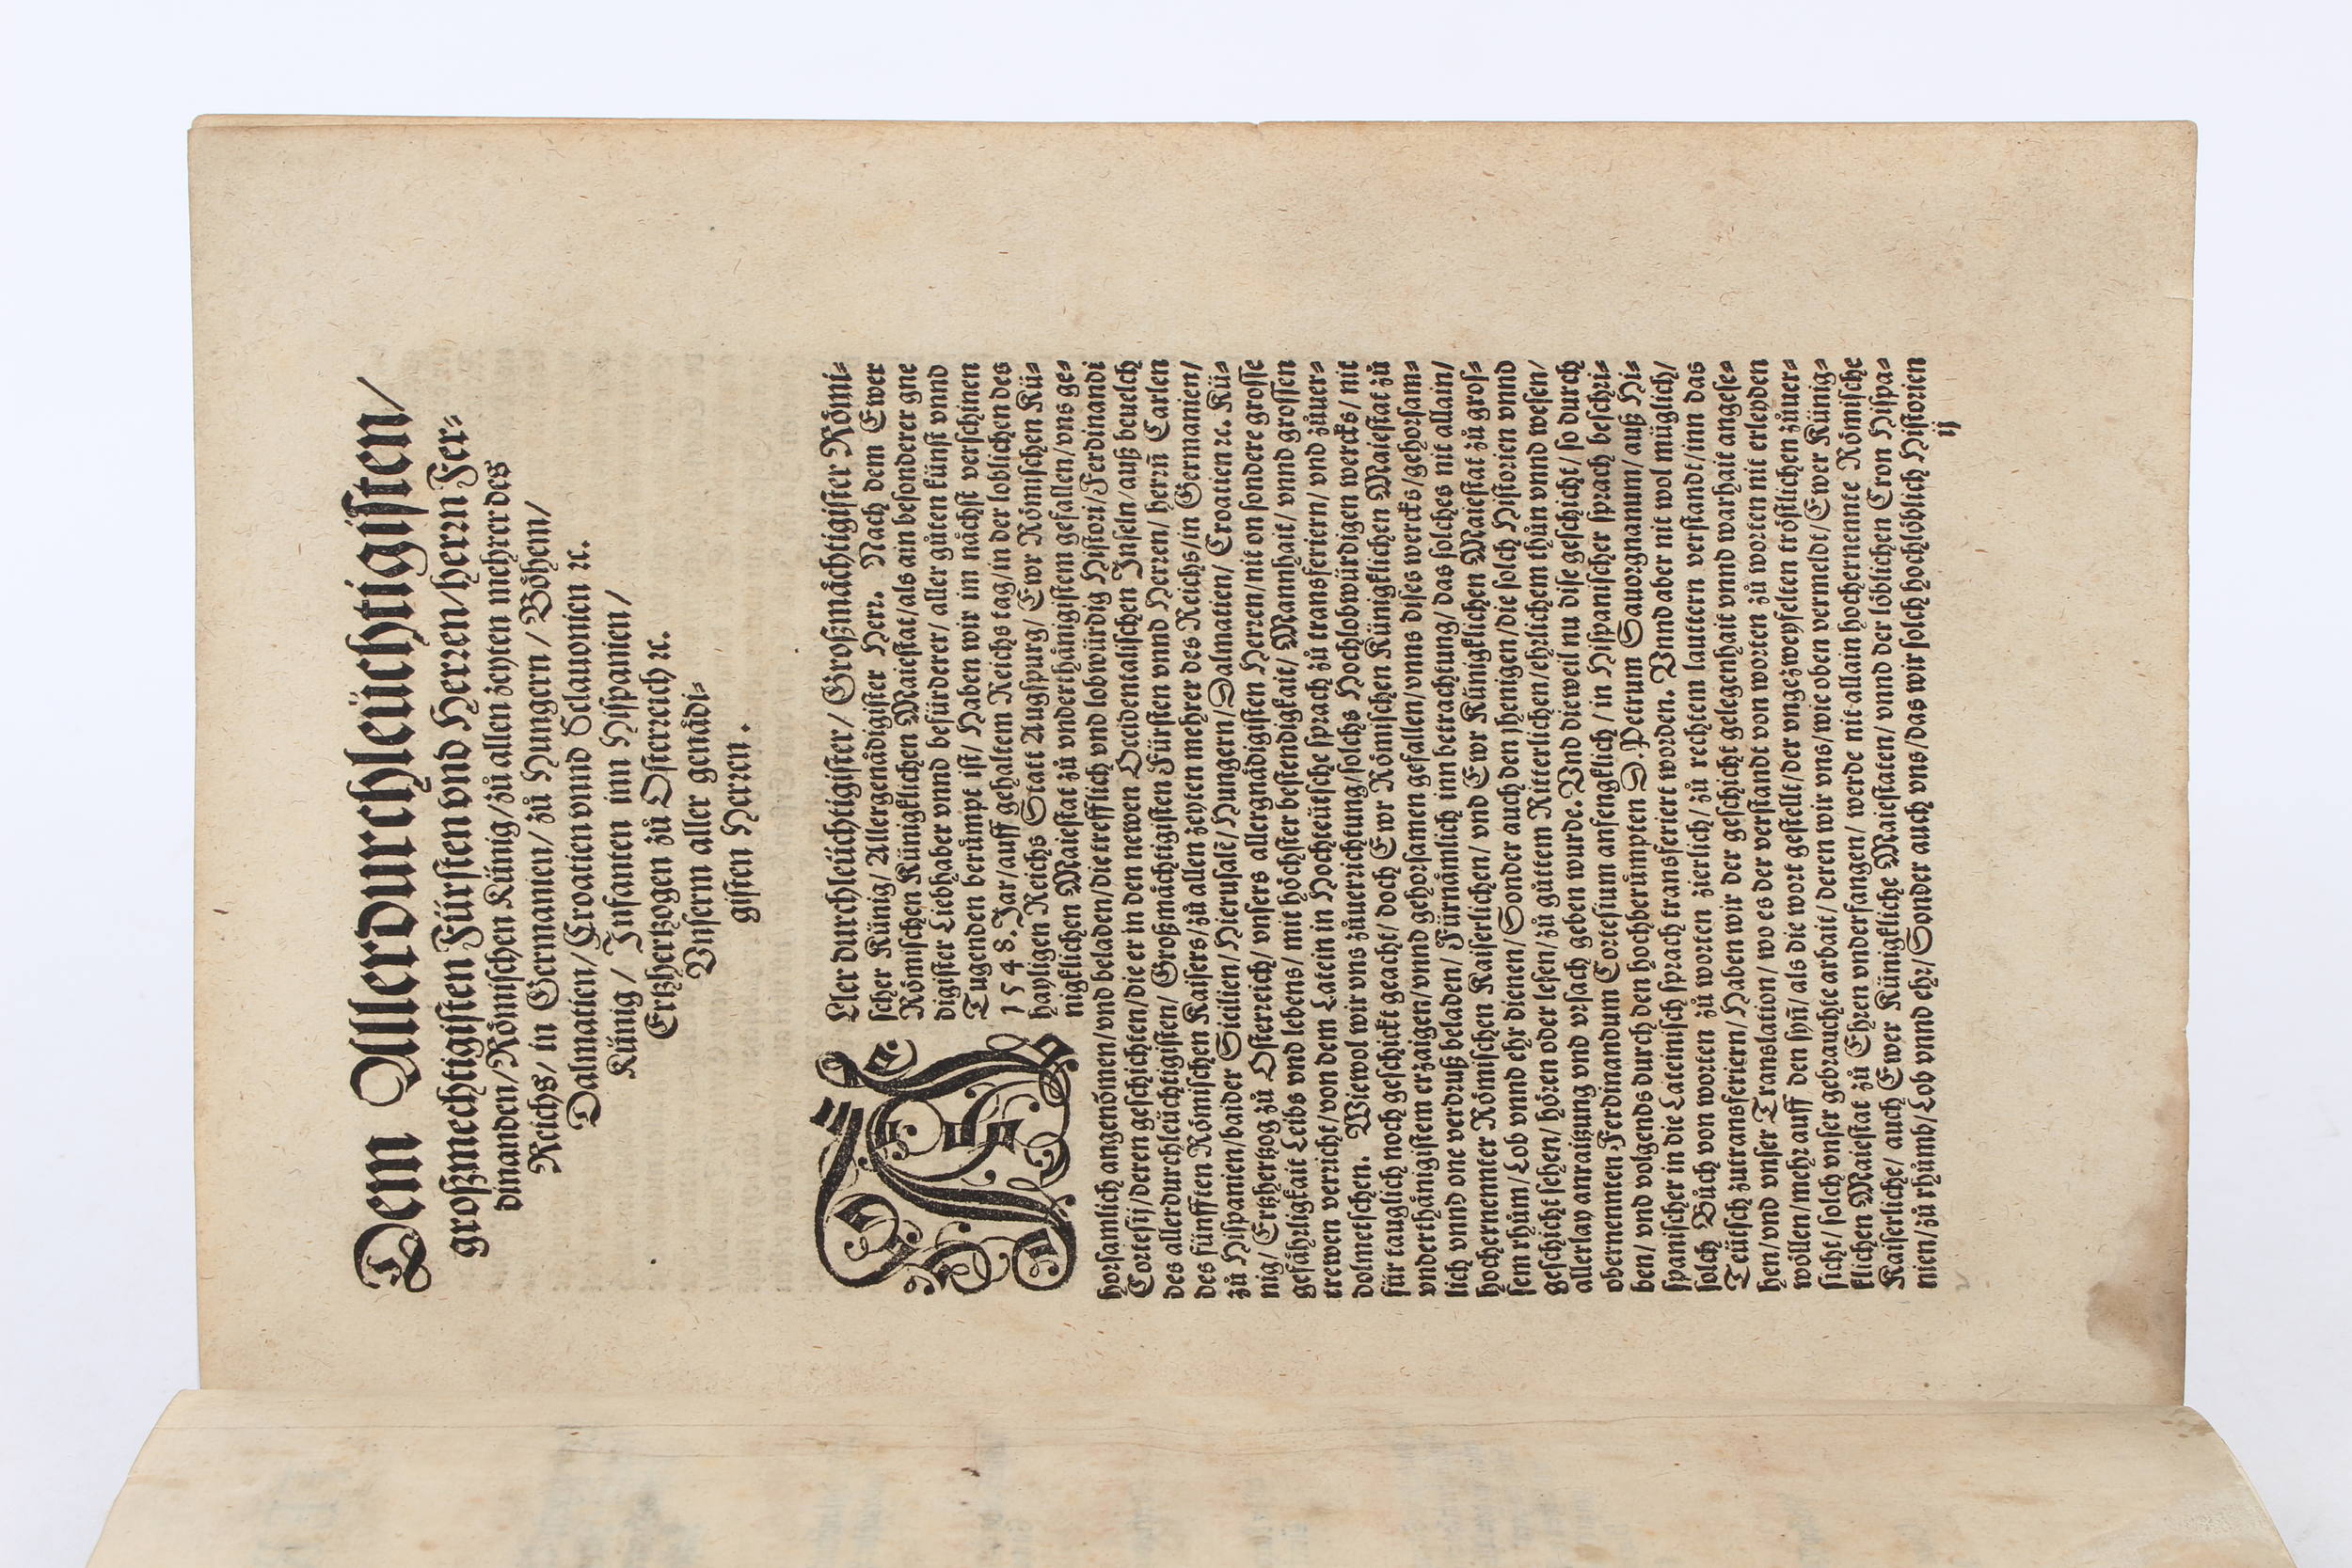 Dem Allerdurchleüchtigisten/
großmechtigisten Fürsten vnd Herren/herrn Fer-
dinanden/Römischen Künig/zů allen zeyten mehrer des
Reichs/ in Germanien/ zů Hungern/ Böhem/
Dalmatien/ Croatien vnnd Sclauonien ꝛc.
Künig/ Infanten inn Hispanien/
Ertzhertzogen zů Osterreich ꝛc.
Vnserm aller genådi-
gisten Herren.
ALler durchleüchtigister/ Großmåchtigister Römi-
scher Künig/ Allergenådigister Herr. Nach dem Ewer
Römischen Künigklichen Maiestat/als ain besonderer gne
digister Liebhaber vnnd befürderer/ aller gůten künst vnnd
Tugenden berůmpt ist/ Haben wir im nåchst verschinen
1548. Jar/auff gehaltem Reichs tag/in der loblichen des
hayligen Reichs Statt Augspurg/ Ewr Römischen Kü-
nigklichen Maiestat zů vnderthånigistem gefallen/vns ge-
horsamlich angenõmen/vnd beladen/die trefflich vnd lobwürdig Histori/Ferdinandi
Cortesij/deren geschichten/die er in den newen Occidentalischen Inseln/auß beuelch
des allerdurchleüchtigisten/ Großmåchtigisten Fürsten vnnd Herren/ herrñ Carlen
des fünfften Römischen Kaisers/zů allen zeyten mehrer des Reichs/in Germanien/
zů Hispanien/baider Sicilien/Hierusalẽ/Hungern/Dalmatien/ Croatien ꝛc. Kü-
nig/ Ertzhertzog zů Osterreich/ vnsers allergnådigisten Herren/nit on sondere grosse
gefährligkait Leibs vnd lebens/ mit höchster bestendigkait/ Mannhait/ vnnd grossen
trewen verricht/von dem Latein in Hochteütsche sprach zů transferiern/ vnd zůuer-
dolmetschen. Wiewol wir vns zůuerrichtung/solchs Hochlobwürdigen wercks/ nit
für tauglich noch geschickt geacht/ doch Ewr Römischen Künigklichen Maiestat zů
vnderthånigistem erzaigen/vnnd gehorsamen gefallen/vnns dises wercks/gehorsam-
lich vnnd one verdruß beladen/ Fürnåmlich inn betrachtung/ das solches nit allain/
hochernennter Römischen Kaiserlichen/ vnd Ewr Künigklichen Maiestat zů gros-
sem rhům/Lob vnnd ehr dienen/Sonder auch den jhenigen/die solch Historien vnnd
geschicht sehen/ hören oder lesen/zů gůttem Ritterlichen/ehrlichem thůn vnnd wesen/
allerlay anraitzung vnd vrsach geben wurde. Vnd dieweil nu dise geschicht/ so durch
obernennten Ferdinandum Cortesium anfengklich / in Hispanischer sprach beschri-
ben/ vnd volgends durch den hochberůmpten D. Petrum Sauorgnanum/ auß Hi-
spanischer in die Lateinisch sprach transferiert worden. Vnnd aber nit wol müglich/
solch Bůch von worten zů worten zierlich/ zů rechtem lauttern verstandt/inn das
Teütsch zutransferiern/Haben wir der geschicht gelegenhait vnnd warhait angese-
hen/vnd vnser Translation/ wo es der verstandt von worten zů worten nit erleyden
wöllen/mehr auff den syñ/als die wort gestellt/der vngezweyfelten tröstlichen zůuer-
sicht/ solch vnser gebrauchte arbait/ deren wir vns/wie oben vermeldt/ Ewer Künig-
klichen Maiestat zů Ehren vnderfangen/ werde nit allain hochernennte Römische
Kaiserliche/ auch Ewer Künigkliche Maiestaten/ vnnd der löblichen Cron Hispa-
nien/zů rhůmb/Lob vnnd ehr/Sonder auch vns/das wir solch hochlöblich Historien
ij